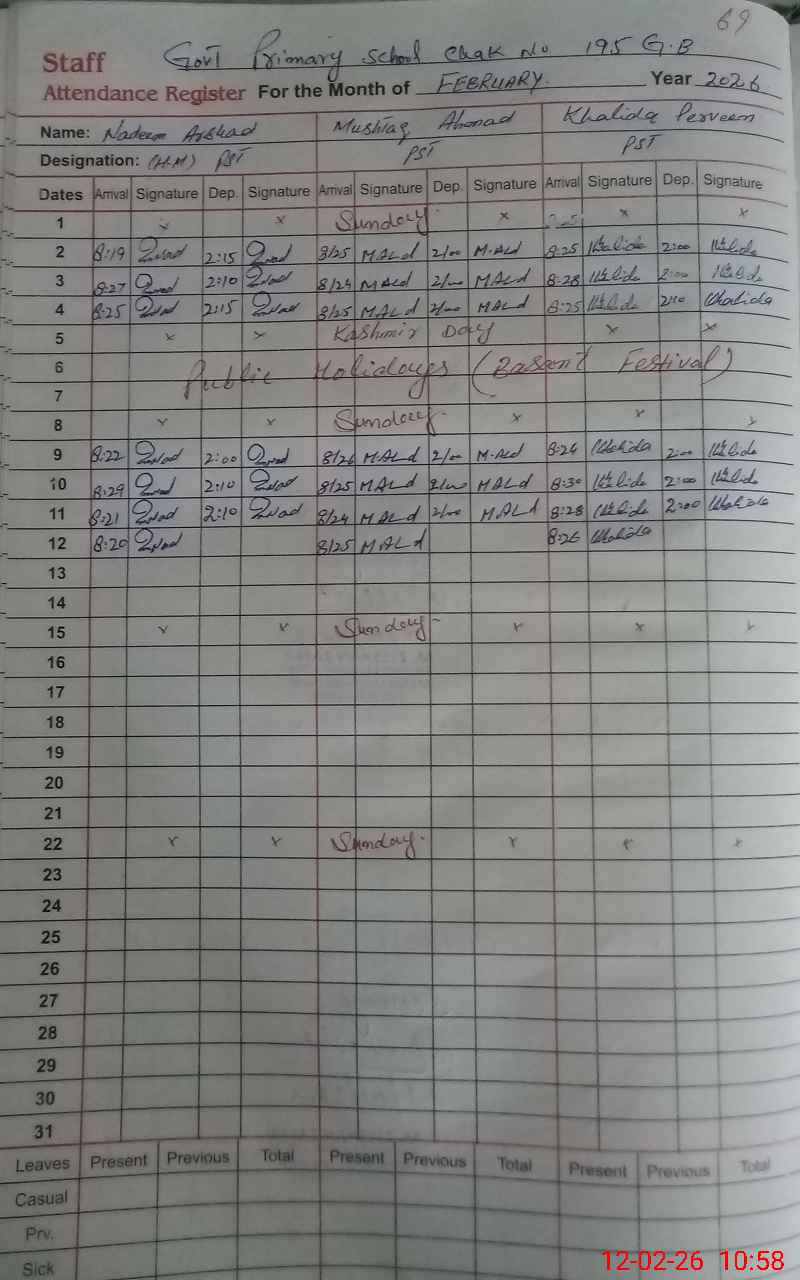 69
Staff Govt Primary School Chak No 195 G.B
Attendance Register For the Month of FEBRUARY. Year 2026
Name: Nadeem Arshad Mushtaq Ahmad Khalida Perveen
Designation: (H.M) PST PST PST
Dates Arrival Signature Dep. Signature Arrival Signature Dep. Signature Arrival Signature Dep. Signature
1 x x Sunday. x x x
2 8:19 2:15 8/25 MALd 2/00 M.ALd 8:25 Khalida 2:00 Khalida
3 8:27 2:10 8/24 MALd 2/00 MALd 8:28 Khalida 2:00 Khalida
4 8:25 2:15 8/25 MALd 2/00 MALd 8:25 Khalida 2:10 Khalida
5 x x Kashmir Day x x
6 Public Holidays (Basant Festival)
7
8 x x Sunday. x x x
9 8:22 2:00 8/26 MALd 2/00 M.ALd 8:24 Khalida 2:00 Khalida
10 8:29 2:10 8/25 MALd 2/00 MALd 8:30 Khalida 2:00 Khalida
11 8:21 2:10 8/24 MALd 2/00 MALd 8:28 Khalida 2:00 Khalida
12 8:20 8/25 MALd 8:26 Khalida
13
14
15 x x Sunday x x x
16
17
18
19
20
21
22 x x Sunday. x x x
23
24
25
26
27
28
29
30
31
Leaves Present Previous Total Present Previous Total Present Previous Total
Casual
Prv.
Sick
12-02-26 10:58